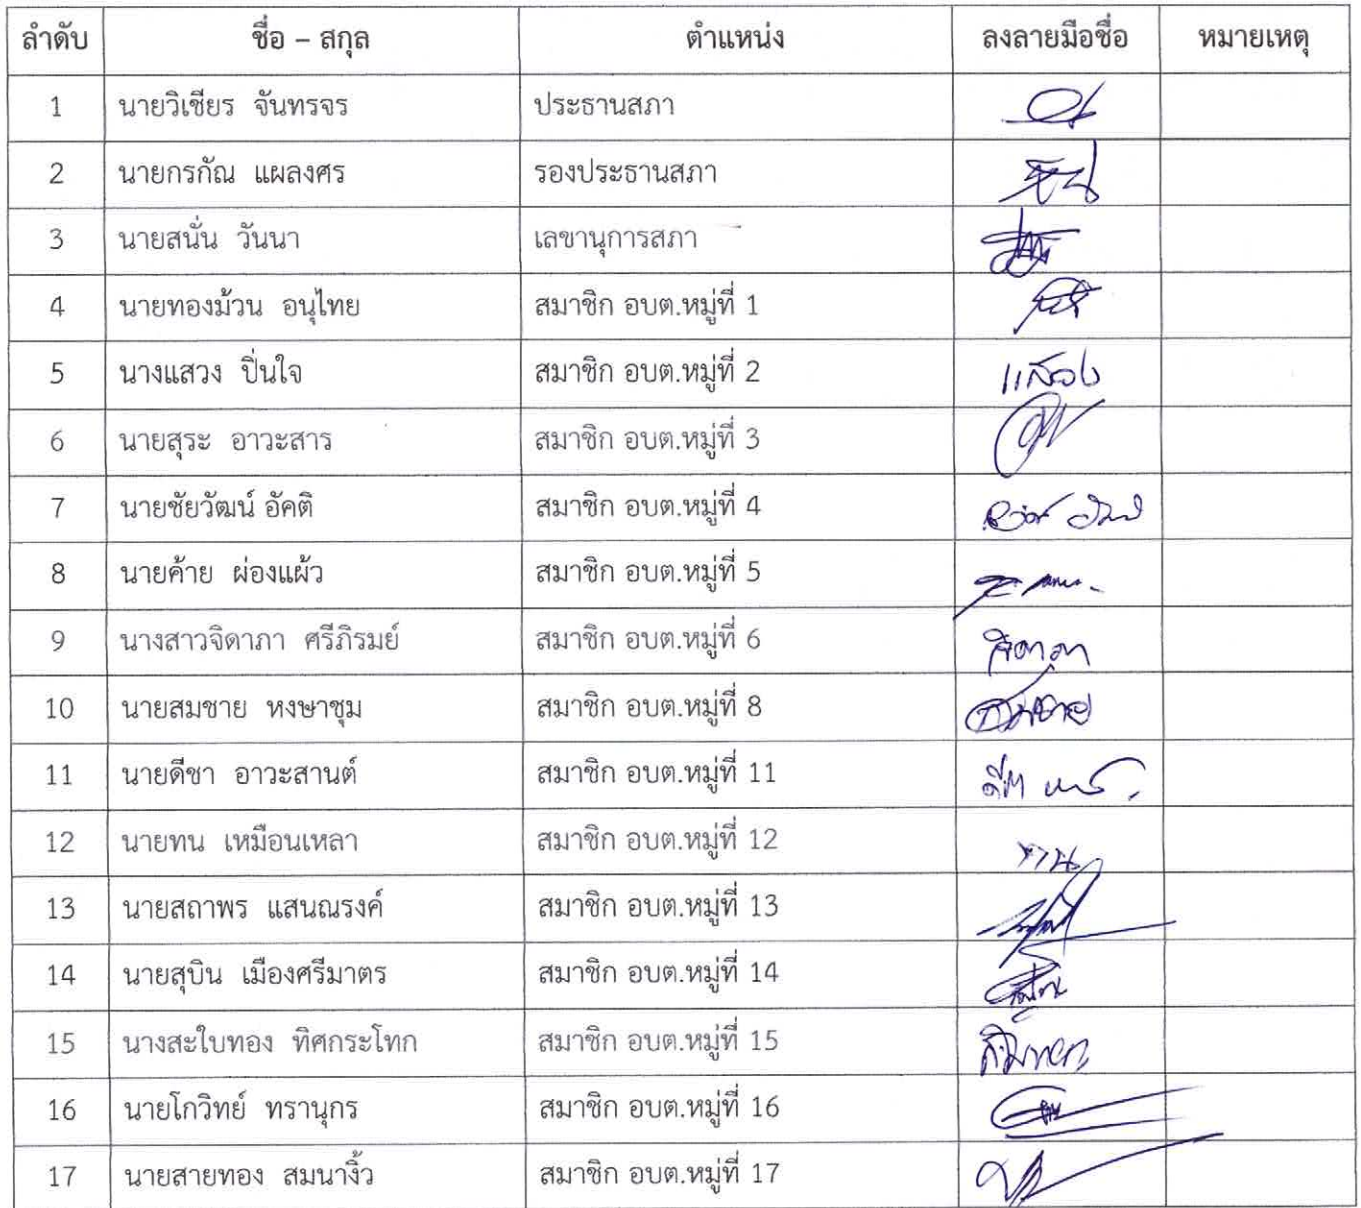 ลำดับ ชื่อ – สกุล ตำแหน่ง ลงลายมือชื่อ หมายเหตุ
1 นายวิเชียร จันทรจร ประธานสภา
2 นายกรกัณ แผลงศร รองประธานสภา
3 นายสนั่น วันนา เลขานุการสภา
4 นายทองม้วน อนุไทย สมาชิก อบต.หมู่ที่ 1
5 นางแสวง ปิ่นใจ สมาชิก อบต.หมู่ที่ 2 แสวง
6 นายสุระ อาวะสาร สมาชิก อบต.หมู่ที่ 3
7 นายชัยวัฒน์ อัคติ สมาชิก อบต.หมู่ที่ 4
8 นายค้าย ผ่องแผ้ว สมาชิก อบต.หมู่ที่ 5
9 นางสาวจิดาภา ศรีภิรมย์ สมาชิก อบต.หมู่ที่ 6 จิดาภา
10 นายสมชาย หงษาชุม สมาชิก อบต.หมู่ที่ 8 สมชาย
11 นายดีชา อาวะสานต์ สมาชิก อบต.หมู่ที่ 11
12 นายทน เหมือนเหลา สมาชิก อบต.หมู่ที่ 12
13 นายสถาพร แสนณรงค์ สมาชิก อบต.หมู่ที่ 13
14 นายสุบิน เมืองศรีมาตร สมาชิก อบต.หมู่ที่ 14
15 นางสะใบทอง ทิศกระโทก สมาชิก อบต.หมู่ที่ 15
16 นายโกวิทย์ ทรานุกร สมาชิก อบต.หมู่ที่ 16
17 นายสายทอง สมนางิ้ว สมาชิก อบต.หมู่ที่ 17